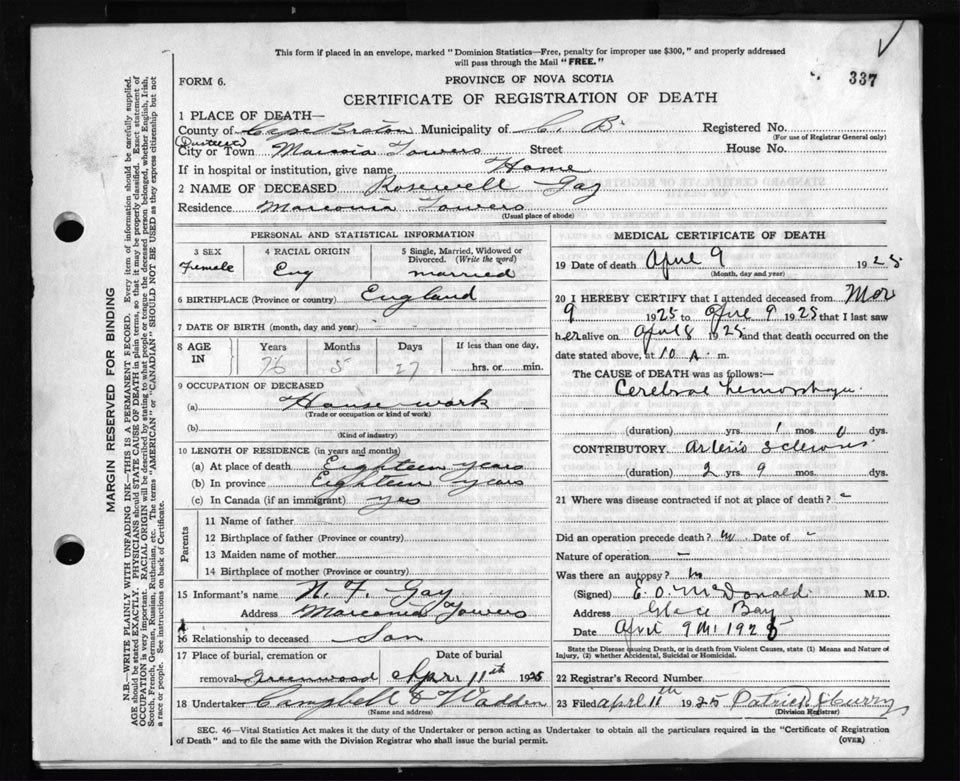 This form if placed in an envelope, marked "Dominion Statistics—Free, penalty for improper use $300," and properly addressed
will pass through the Mail "FREE."
337
FORM 6.
PROVINCE OF NOVA SCOTIA
CERTIFICATE OF REGISTRATION OF DEATH
MARGIN RESERVED FOR BINDING
N.B.—WRITE PLAINLY WITH UNFADING INK—THIS IS A PERMANENT RECORD. Every item of information should be carefully supplied.
AGE should be stated EXACTLY. PHYSICIANS should STATE CAUSE OF DEATH in plain terms, so that it may be properly classified. Exact statement of
OCCUPATION is very important. RACIAL ORIGIN will be described by stating to what people or tongue the deceased person belonged, whether English, Irish,
Scotch, French, German, Russian, Ruthenian, etc. The terms "AMERICAN" or "CANADIAN" SHOULD NOT BE USED as they express citizenship but not
a race or people. See instructions on back of Certificate.
1 PLACE OF DEATH—
County of Cape Breton Municipality of C. B. Registered No.
(For use of Registrar General only)
City or Town Marconia Towers Street House No.
If in hospital or institution, give name Home
2 NAME OF DECEASED Rosewell Gay
Residence Marconia Towers
(Usual place of abode)
PERSONAL AND STATISTICAL INFORMATION
3 SEX Female
4 RACIAL ORIGIN Eng
5 Single, Married, Widowed or Divorced. (Write the word) married
6 BIRTHPLACE (Province or country) England
7 DATE OF BIRTH (month, day and year)
8 AGE IN Years Months Days If less than one day,
76 5 27 hrs. or min.
9 OCCUPATION OF DECEASED
(a) House work
(Trade or occupation or kind of work)
(b)
(Kind of industry)
10 LENGTH OF RESIDENCE (in years and months)
(a) At place of death Eighteen years
(b) In province Eighteen years
(c) In Canada (if an immigrant) yes
Parents
11 Name of father
12 Birthplace of father (Province or country)
13 Maiden name of mother
14 Birthplace of mother (Province or country)
15 Informant's name N. F. Gay
Address Marconia Towers
16 Relationship to deceased Son
17 Place of burial, cremation or Date of burial
removal Greenwood Apr. 11th 1925
18 Undertaker Campbell & Wadden
(Name and address)
MEDICAL CERTIFICATE OF DEATH
19 Date of death April 9 1925
(Month, day and year)
20 I HEREBY CERTIFY that I attended deceased from Mar
9 1925 to April 9 1925 that I last saw
her alive on April 8 1925 and that death occurred on the
date stated above, at 10 A. m.
The CAUSE OF DEATH was as follows:—
Cerebral hemorrhage
(duration) yrs. 1 mos. 0 dys.
CONTRIBUTORY. Arterio sclerosis
(duration) 2 yrs. 9 mos. dys.
21 Where was disease contracted if not at place of death? -
Did an operation precede death? no Date of -
Nature of operation —
Was there an autopsy? no
(Signed) E. O. McDonald M.D.
Address Glace Bay
Date April 9th 1925
State the Disease causing Death, or in death from Violent Causes, state (1) Means and Nature of
Injury, (2) whether Accidental, Suicidal or Homicidal.
22 Registrar's Record Number
23 Filed April 11th 1925
(Division Registrar)
SEC. 46—Vital Statistics Act makes it the duty of the Undertaker or person acting as Undertaker to obtain all the particulars required in the "Certificate of Registration
of Death" and to file the same with the Division Registrar who shall issue the burial permit.
(OVER)